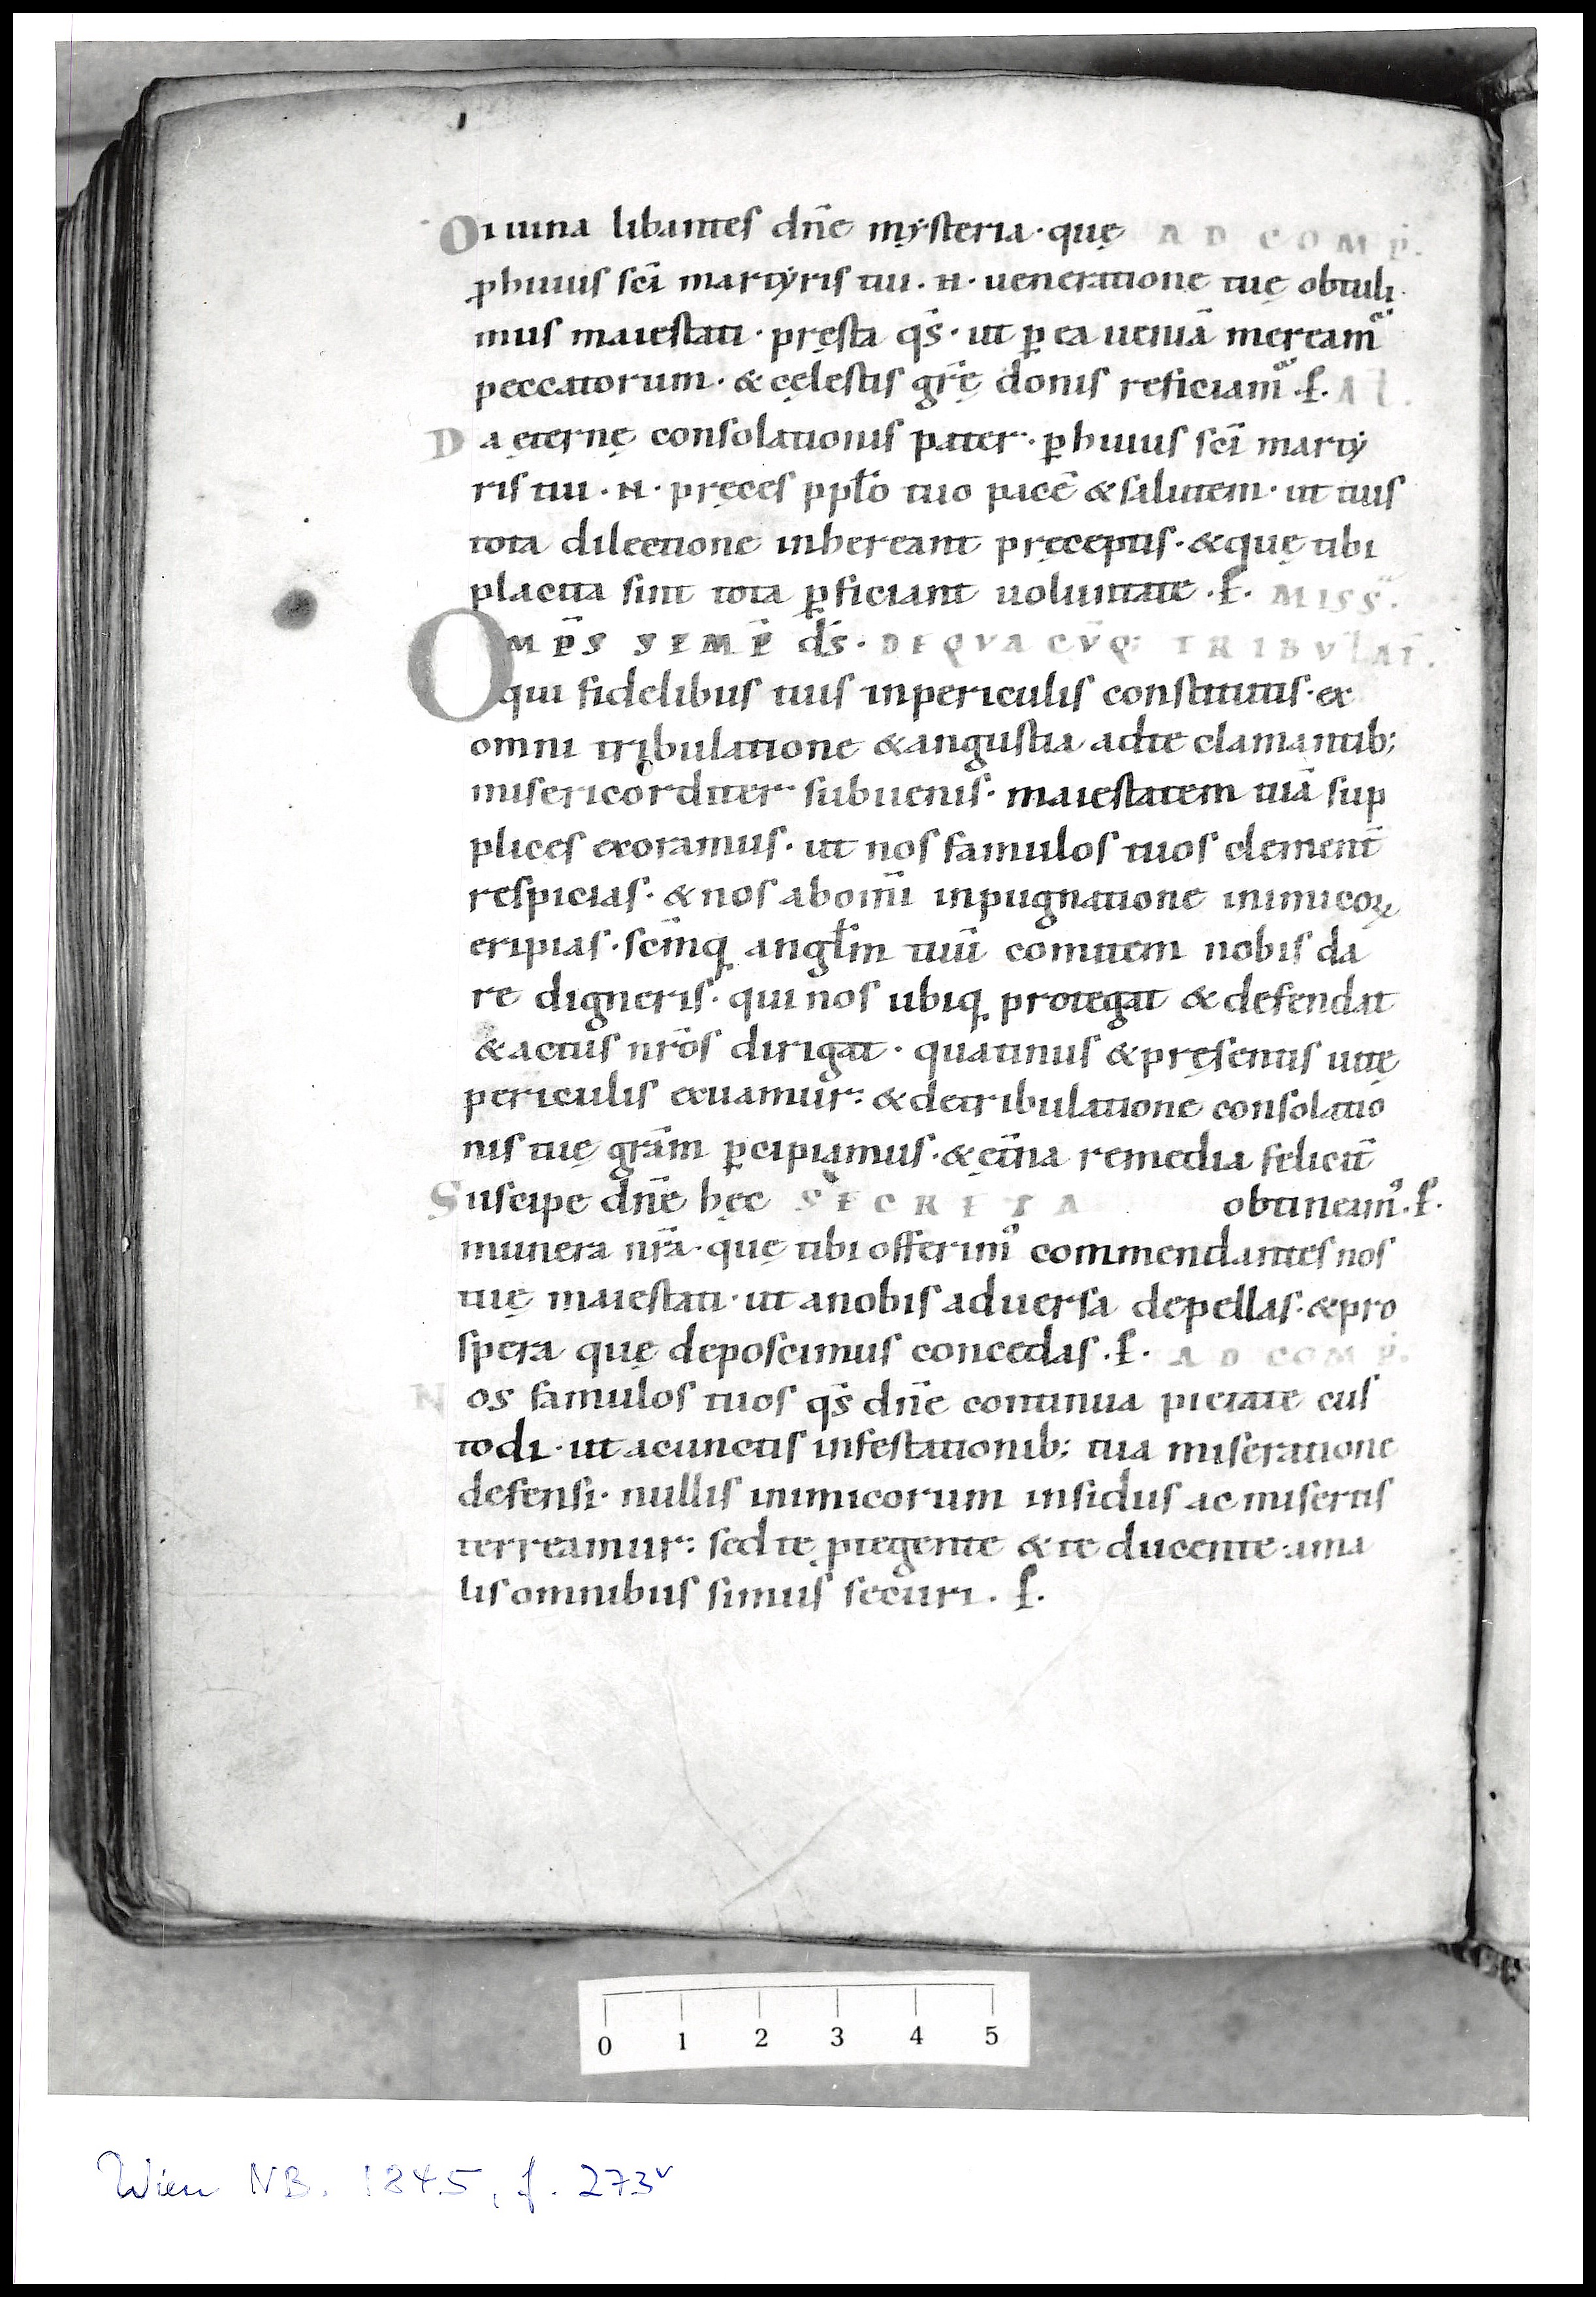 Diuina libantes dn̄e mẏsteria · quę AD COMP̄.
ꝑ huius sc̄i martẏris tui · N · ueneratione tuę obtuli
mus maiestati · pręsta qs̄ · ut ꝑ ea ueniā męream᷒
peccatorum · & cęlestis gr̄ę donis reficiam᷒ · ꝑ · AL̄.
Da ęternę consolationis pater · ꝑ huius sc̄i martẏ
ris tui · N · pręces pp̄lo tuo pacē & salutem · ut tuis
tota dilectione inhereant pręceptis · & quę tibi
placita sunt tota ꝑficiant uoluntate · ꝑ · MISS̄.
OMP̄S SEMP̄ ds̄ · DE QVACV̄Q; TRIBVLAT̄.
qui fidelibus tuis in periculis constitutis · ex
omni tribulatione & angustia ad te clamantib;
misericorditer subuenis · maiestatem tuā sup
plices exoramus · ut nos famulos tuos clement̄
respicias · & nos ab om̄i inpugnatione inimicoꝝ
eripias · sc̄mq; angl̄m tuū comitem nobis da
re digneris · qui nos ubiq; protegat & defendat
& actus nr̄os dirigat · quatinus & pręsentis uitę
periculis exuamur: & de tribulatione consolatio
nis tuę gr̄am ꝑcipiamus · & ęt̄na remedia felicit̄
Suscipe dn̄e hęc SECRETA obtineam᷒ · ꝑ ·
munera nr̄a · quę tibi offerim᷒ commendantes nos
tuę maiestati · ut a nobis aduersa depellas · & pro
spera quę deposcimus concedas · ꝑ · AD COMP̄.
Nos famulos tuos qs̄ dn̄e continua pietate cus
todi · ut a cunctis infestationib; tua miseratione
defensi · nullis inimicorum insidiis ac miseriis
terreamur: sed te ꝓtegente & te ducente · a ma
lis omnibus simus securi · ꝑ ·
0 1 2 3 4 5
Wien NB. 1845, f. 273v